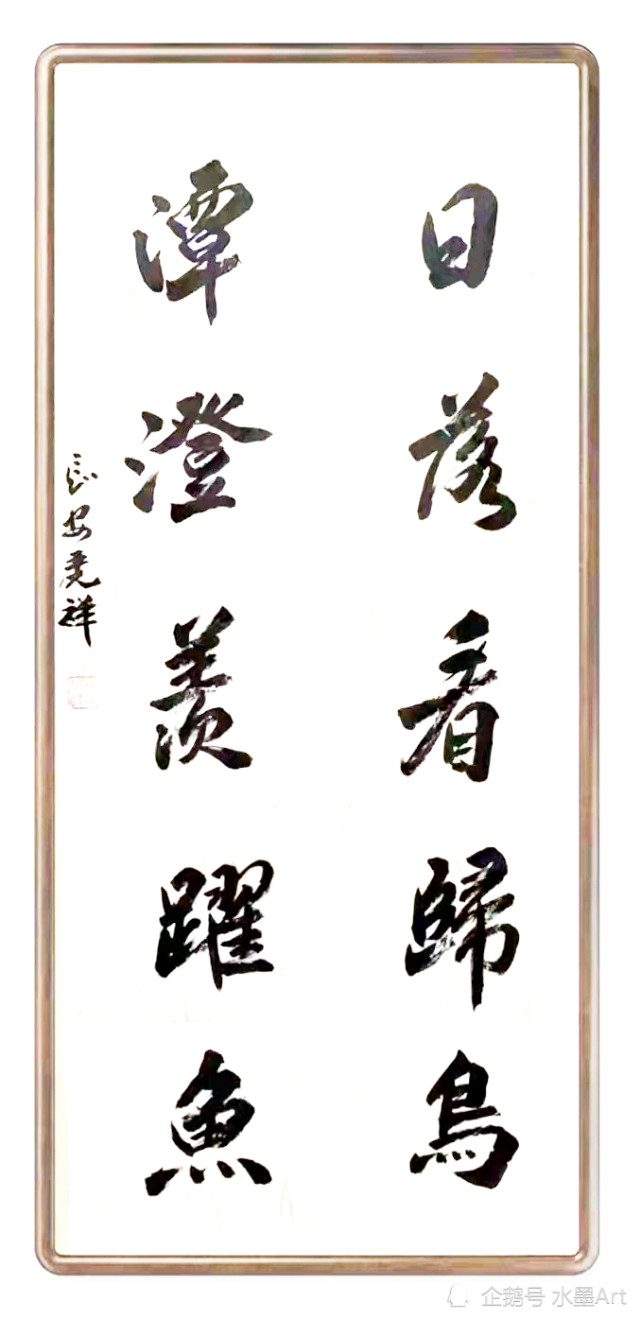 日落看歸鳥
潭澄羨躍魚
長安堯祥
企鹅号 水墨Art